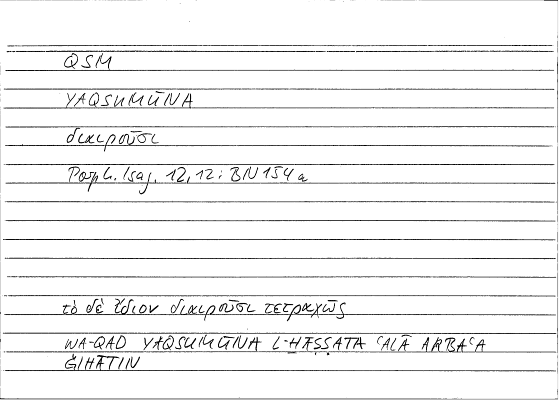 QSM
YAQSUMŪNA
διαιροῦσι
Porph. Isag. 12,12: BN 154 a
τὸ δὲ ἴδιον διαιροῦσι τετραχῶς
WA-QAD YAQSUMŪNA L-ḪĀṢṢATA ʿALĀ ARBAʿA
ǦIHĀTIN